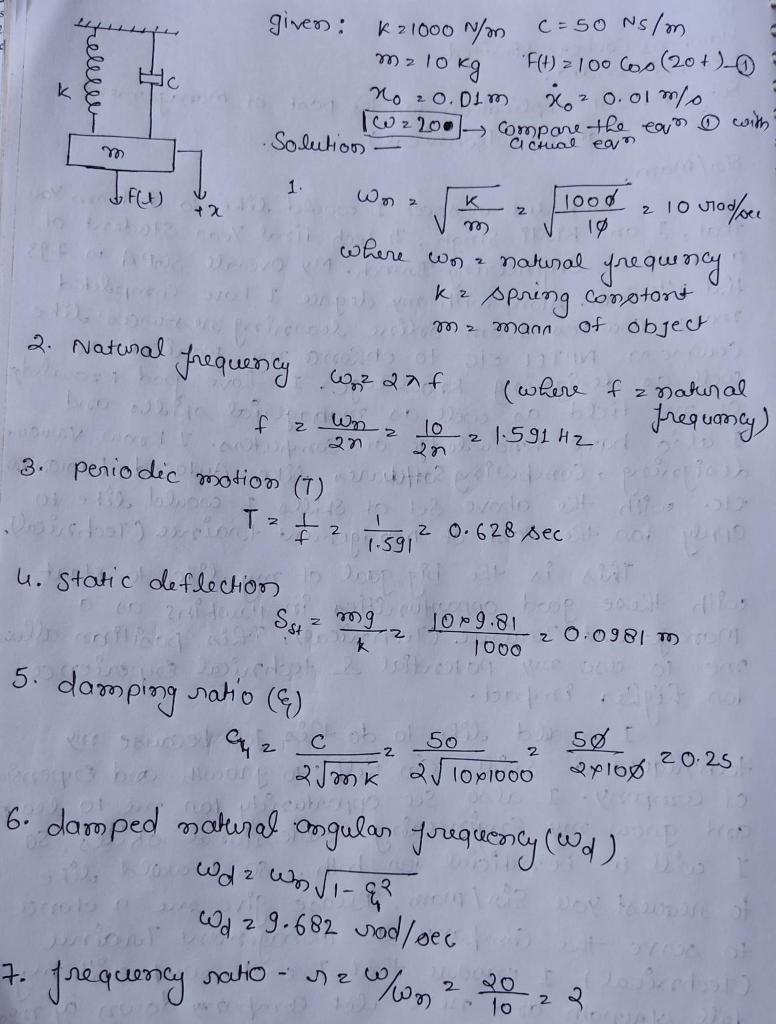 given: K = 1000 N/m C = 50 NS/m
m = 10 kg F(t) = 100 Cos (20t) - ①
x₀ = 0.01m ẋ₀ = 0.01 m/s
ω = 20 → compare the eqn ① with actual eqn
K C m F(t) +x
Solution —
1. ωn = √(K/m) = √(1000/10) = 10 rad/sec
where ωn = natural frequency
K = spring constant
m = mass of object
2. Natural frequency ωn = 2πf (where f = natural frequency)
f = ωn/2π = 10/2π = 1.591 Hz
3. periodic motion (T)
T = 1/f = 1/1.591 = 0.628 sec
4. static deflection
Sst = mg/k = 10×9.81/1000 = 0.0981 m
5. damping ratio (ξ)
ξ = C/2√mK = 50/2√10×1000 = 50/2×100 = 0.25
6. damped natural angular frequency (ωd)
ωd = ωn √1-ξ²
ωd = 9.682 rad/sec
7. frequency ratio - r = ω/ωn = 20/10 = 2